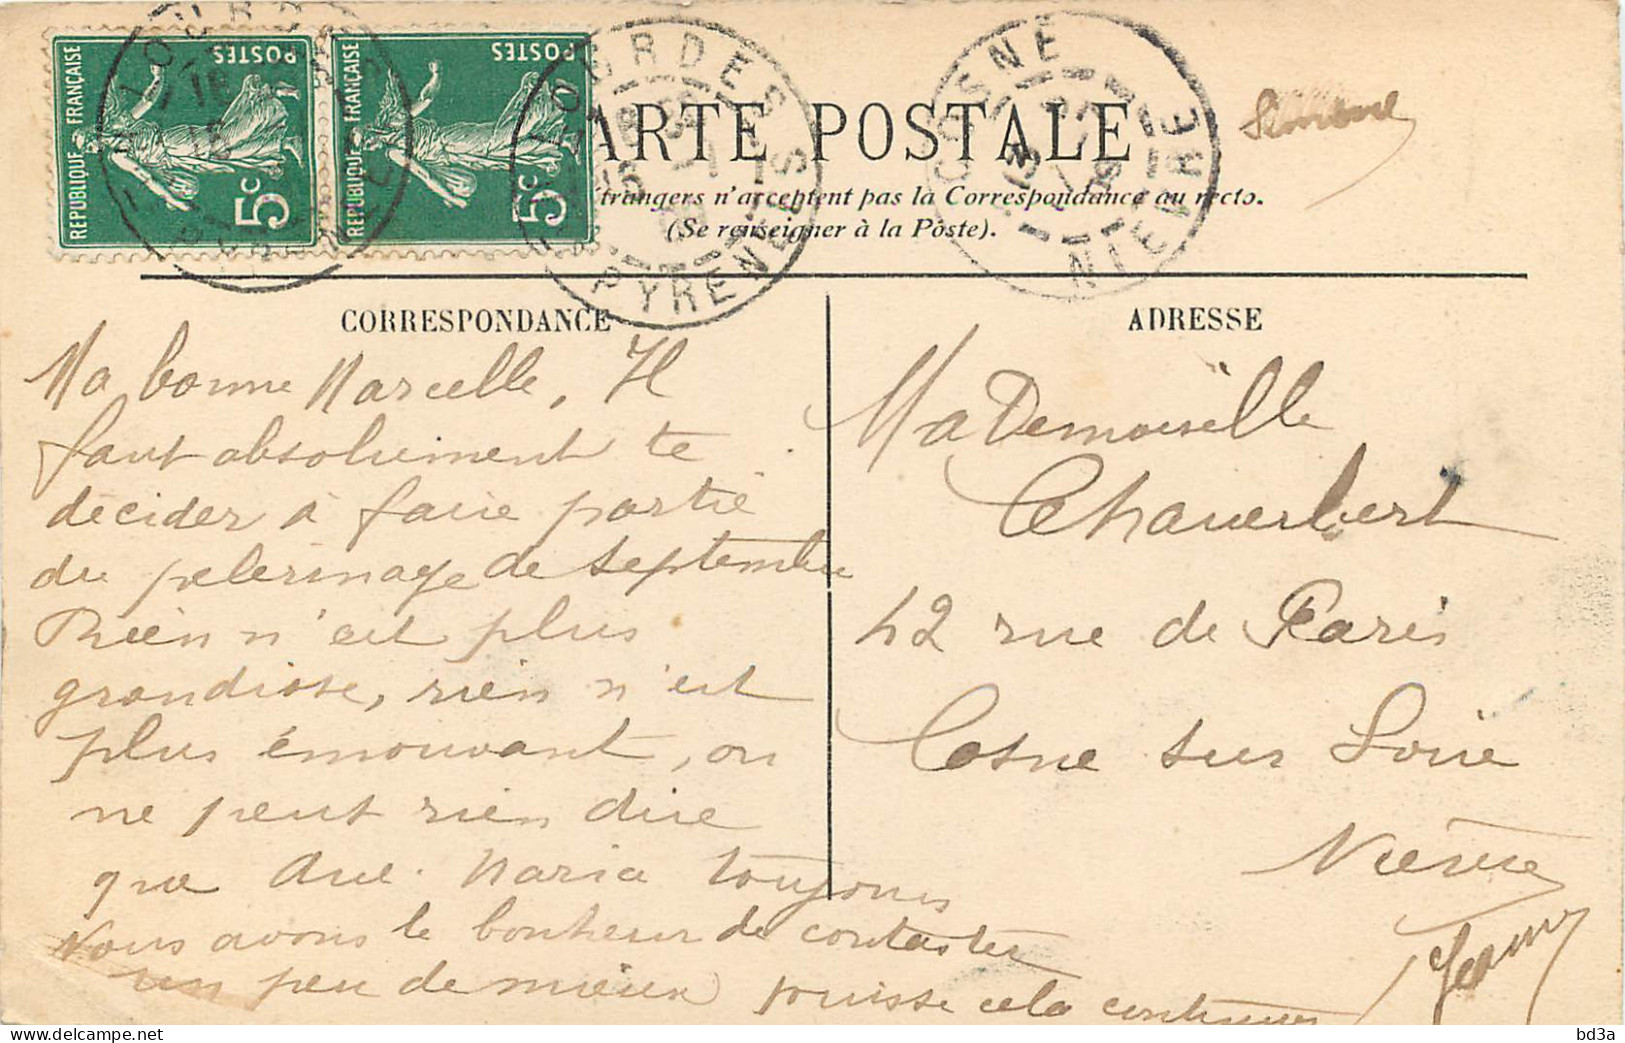 POSTES
RÉPUBLIQUE FRANÇAISE
5c
POSTES
RÉPUBLIQUE FRANÇAISE
5c
LOURDES
PYRÉNÉES
COSNE
NIÈVRE
Simone
CARTE POSTALE
étrangers n'acceptent pas la Correspondance au recto.
(Se renseigner à la Poste).
CORRESPONDANCE
ADRESSE
Ma bonne Marcelle, Il
faut absolument te
décider à faire partie
du pélerinage de septembre
Rien n'est plus
grandiose, rien n'est
plus émouvant, on
ne peut rien dire
que Ave Maria toujours
Nous avons le bonheur de contaster
un peu de mieux puisse cela continuer
MaDemoiselle
Chauerbert
42 rue de Paris
Cosne sur Loire
Nièvre
bd3a